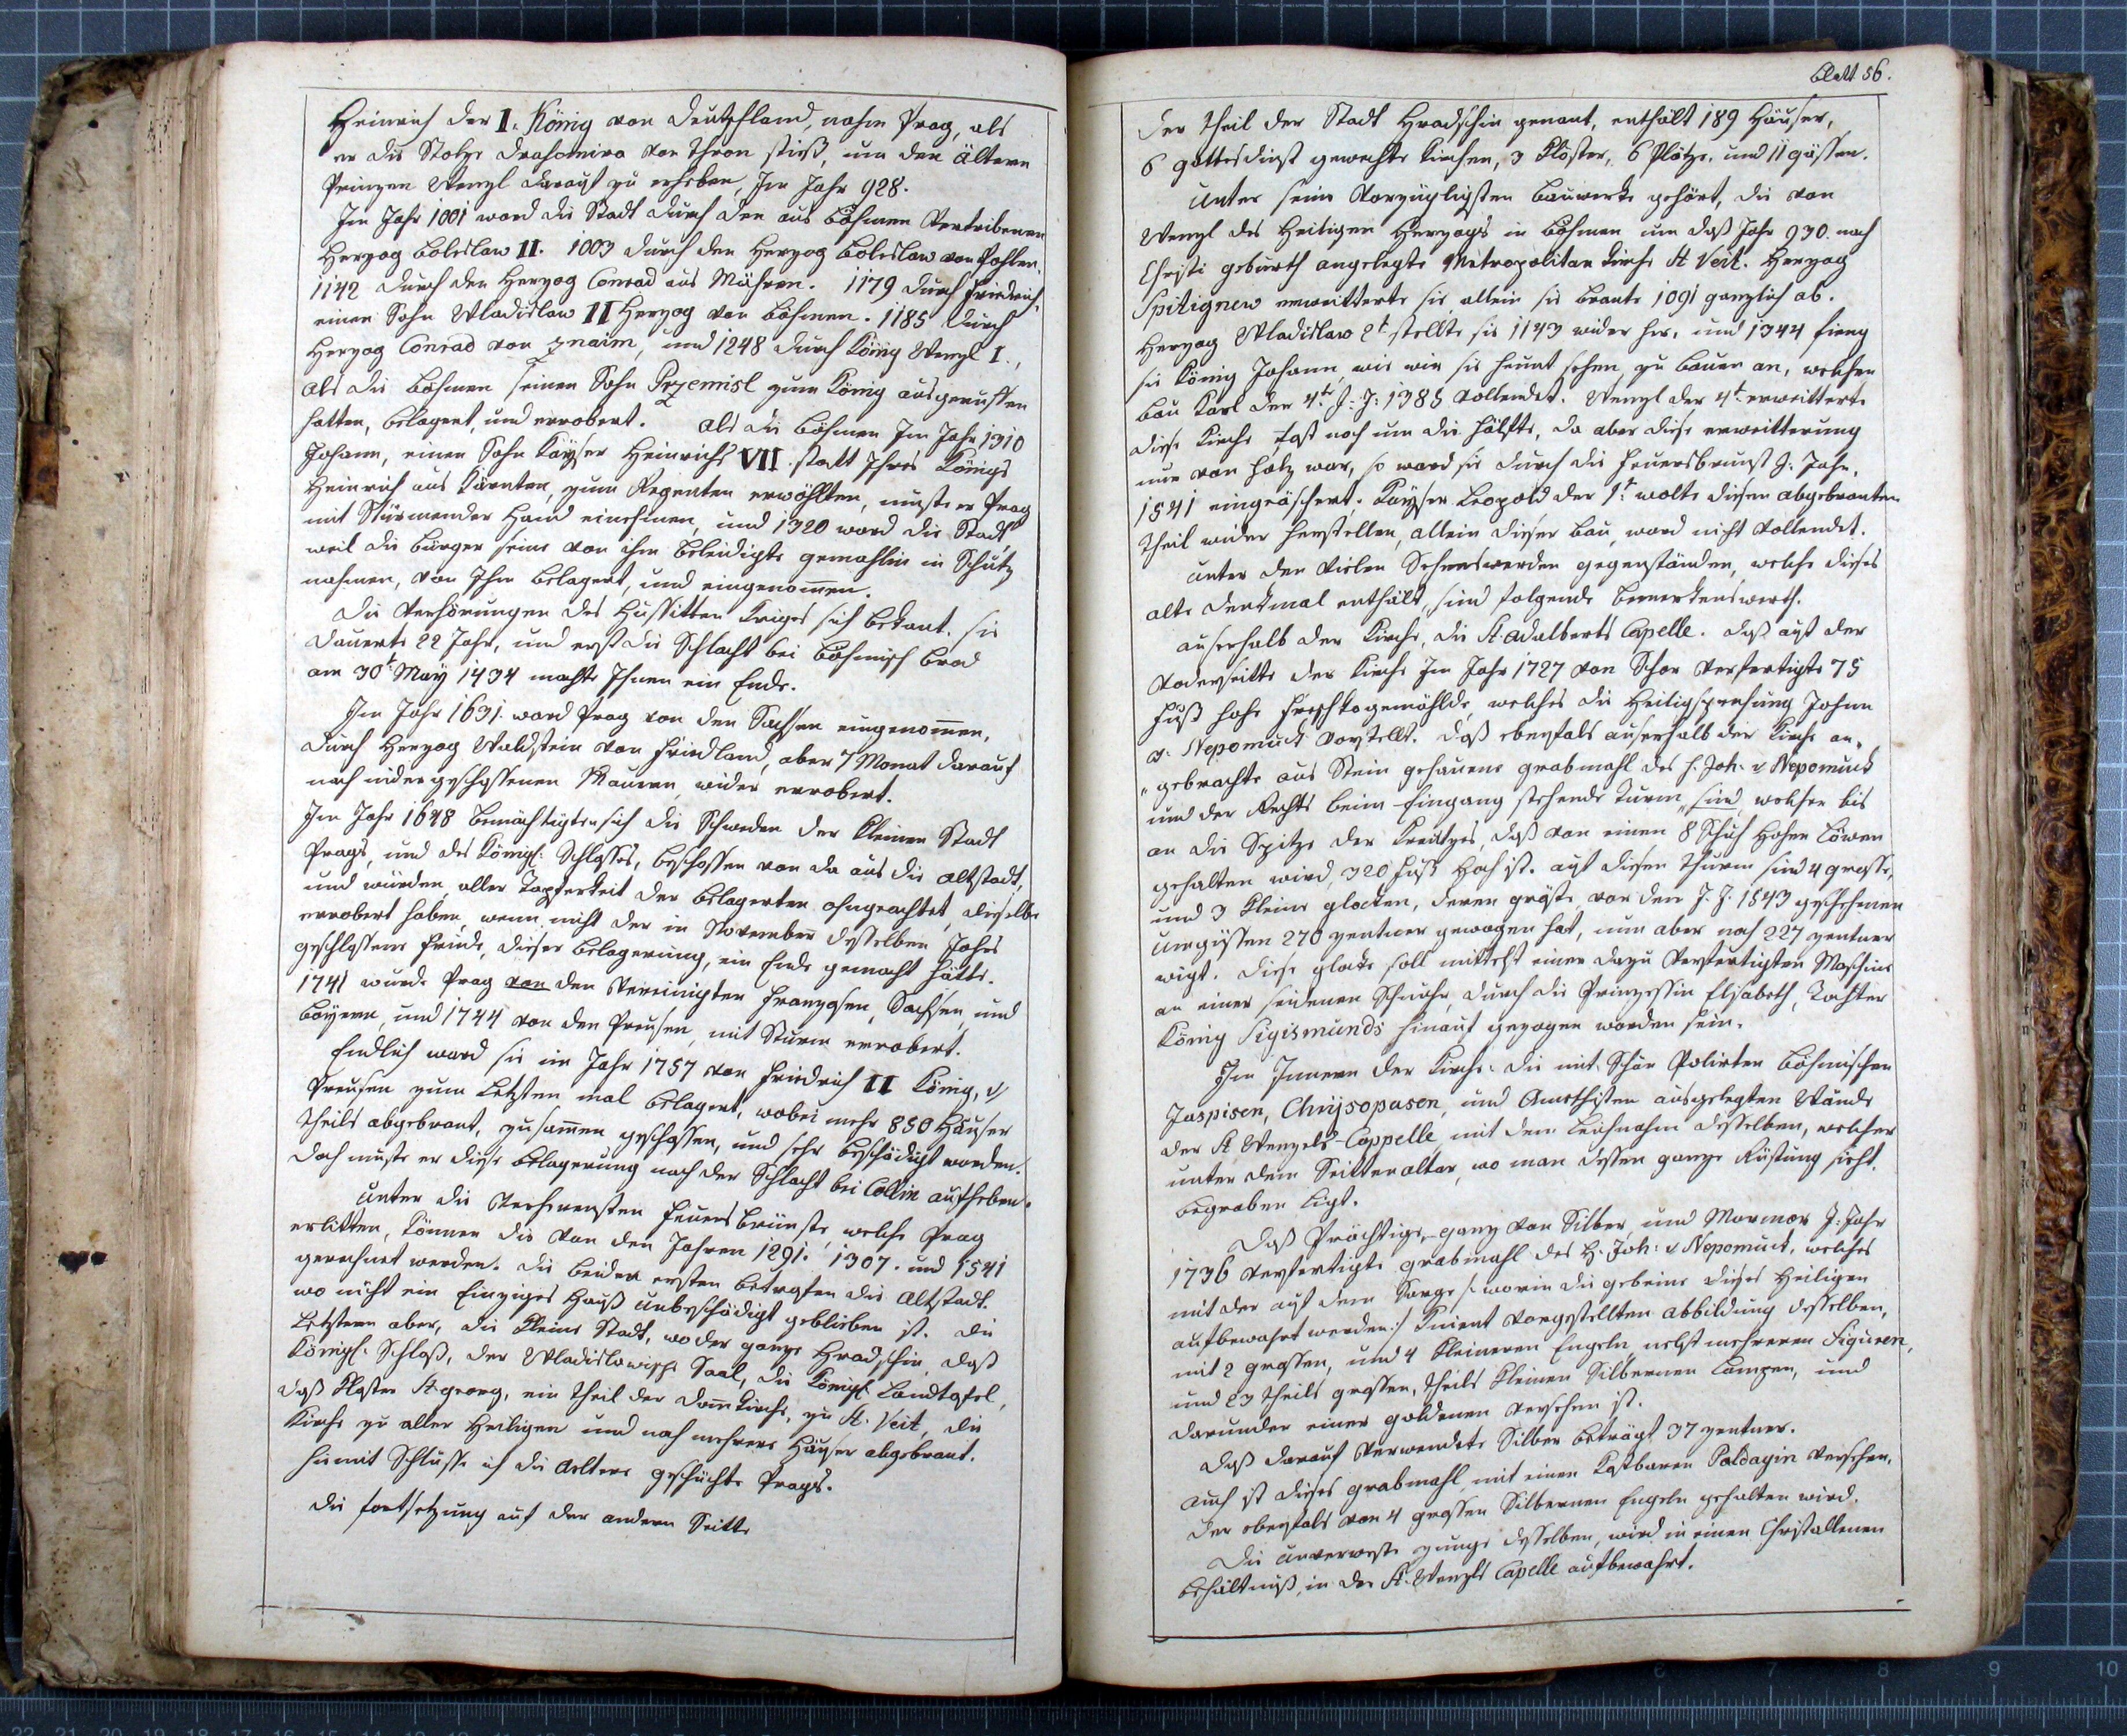 Heinrich der I. König von Deutschland, nahm Prag, als
er die Stolze Drahomira von Thron stieß, um den ältern
Prinzen Wenzl darauf zu erheben, Im Jahr 928.
Im Jahr 1001 ward die Stadt durch den aus Böhmen Vertribenen
Herzog Boleslaw II. 1003 durch den Herzog Boleslaw von Pohlen.
1142 durch den Herzog Conrad aus Mähren. 1179 durch Friedrich,
einen Sohn Wladislaw II Herzog von Böhmen. 1185 durch
Herzog Conrad von Znaim, und 1248 durch König Wenzl I.,
als die Böhmen seinen Sohn Przemisl zum König ausgeruffen
hatten, belagert, und errobert. Als die Böhmen Im Jahr 1310
Johann, einen Sohn Kayser Heinrichs VII. statt Ihres Königs
Heinrich aus Kärnten, zum Regenten erwöhlten, muste er Prag
mit Stürmender Hand einehmen, und 1320 ward die Stadt,
weil die Bürger seine von ihm beleidigte gemahlin in Schutz
nahmen, von Ihm belagert, und eingenom̅en.
Die Verhörungen des Hussitten Kriges sich bekant. sie
dauerte 22 Jahr, und erst die Schlacht bei Böhmisch brod
am 30t May 1434 machte Ihnen ein Ende.
Im Jahr 1631. ward Prag von den Sachsen eingenom̅en,
durch Herzog Waldstein von Friedland, aber 7 Monat darauf
nach nider geschossenen Mauern wider errobert.
Im Jahr 1648 bemächtigten sich die Schweden der Kleinen Stadt
Prags, und des Königl: Schlosses, beschossen von da aus die Altstadt,
und würden, aller Tapferkeit der belagerten ohngeachtet, dieselbe
errobert haben, wenn nicht der in November desselben Jahrs
geschlossene Friede, dieser belagerung, ein Ende gemacht hätte.
1741 wurde Prag von den Vereinigten Franzosen, Sachsen, und
Bäyern, und 1744 von den Preusen, mit Sturm errobert.
Endlich ward sie im Jahr 1757 von Friedrich II König, v
Preusen zum Letzten mal belagert, wobei mehr 850 Häuser
theils abgebrant, zusam̅en geschossen, und sehr beschödigt worden.
doch muste er diese belagerung nach der Schlacht bei Collin aufheben.
Unter die Feuersbrünste, welche Prag
erlitten, können die von den Jahren 1291. 1307. und 1541
gerechnet werden. die beiden ersten betrafen die Altstadt.
wo nicht ein Einziges Hauß unbeschödigt geblieben ist. die
Letztere aber, die Kleine Stadt, wo der ganze Hradschin, daß
Königl: Schloß, der Wladislawische Saal, die Königl: Landtafel,
daß Kloster St georg, ein theil der Dom̅ kirche, zu St. Veit, die
Kirche zu aller Heiligen und noch mehrere Häuser abgebrant.
hiemit Schlüsse ich die Aeltere geschichte Prags.
die fortsetzung auf der andern Seitte
Blatt 56.
Der theil der Stadt Hradschin genant, enthält 189 Häuser,
6 gottesdinst geweihte Kirchen, 3 Klöster, 6 Plätze. und 11 gässen.
Unter seine Vorzügligsten bauwerke gehört, die von
Wenzl des Heiligen Herzogs in Böhmen um daß Jahr 930. nach
Christi geburth angelegte Metropolitan Kirche St Veit. Herzog
Spitignew erweitterte sie, allein sie brante 1091 ganzlich ab.
Herzog Wladislaw 2t stellte sie 1143 wider her, und 1344 fieng
sie König Johann, wie wir sie heunt sehen, zu bauen an, welchen
bau Karl der 4te J: J: 1385 vollendet. Wenzl der 4t erweitterte
diese Kirche fast noch um die hälfte, da aber diese erweitterung
nur von holz war, so ward sie durch die feuersbrunst J: Jahr,
1541 eingeäschert. Kayser Leopold der 1t wolte diesen abgebranten
theil wider herstellen, allein dieser bau, ward nicht vollendet.
Unter den vielen Sehenswerden gegenständen, welche dieses
alte denkmal enthält, sind folgende bemerkenswerth.
auserhalb der Kirche, die St. Adalberts Capelle. daß auf der
Voderseitte der Kirche Im Jahr 1727 von Schor Verfertigte 75
fuß hohe freschkogemählde, welches die Heiligsprechung Johan
v: Nepomuck Vorstellt. daß ebenfals auserhalb der Kirche an„
„gebrachte aus Stein gehauene grabmahl des h. Joh. v Nepomuck
und der Rechts beim Eingang stehende Turm, sind, welcher bis
an die Spitze des Kreutzes, daß von einen 8 Schuh hohen Löwen
gehalten wird, 320 fuß hoch ist. auf diesen thurm sind 4 grosse,
und 3 kleine glocken, deren gröste, vor den J. J. 1543 geschehenen
Umgüssen 270 zentner gewogen hat, nun aber noch 227 zentner
wigt. diese glocke soll mittelst einer dazu Verfertigten Maschine
an einer seidenen Schnuhr, durch die Prinzessin Elisabeth, Tochter
König Sigismunds hinauf gezogen worden sein.
Im Innern der Kirche: die mit Schön Polirten böhmischen
Jaspisen, Chrysopasen, und Amethisten ausgelegten Wände
der St Wenzels-Cappelle, mit dem Leichnahm desselben, welcher
unter dem Seittenaltar, wo man dessen ganze Rüstung sieht,
begraben ligt.
Daß Prächtige, ganz von Silber, und Marmor J. Jahr
1736 verfertigte grabmahl des H. Joh: v Nepomuck, welches
mit der auf dem Sarge /: worin die gebeine dieses Heiligen
aufbewahrt werden :/ knient Vorgestellten abbildung desselben,
mit 2 grossen, und 4 kleineren Engeln, nebst mehreren Figuren,
und 23 theils grossen, theils kleinen Silbernen Lampen, und
darunder einer goldenen versehen ist.
Daß darauf Verwendete Silber beträgt 37 zentner.
auch ist dieses grabmahl, mit einen Kostbaren Paldagin versehen,
der ebenfals von 4 grossen Silbernen Engeln gehalten wird.
Die unverweste zunge desselben, wird in einen Christallenen
behältniß, in der St. Wenzls Capelle aufbewahrt.